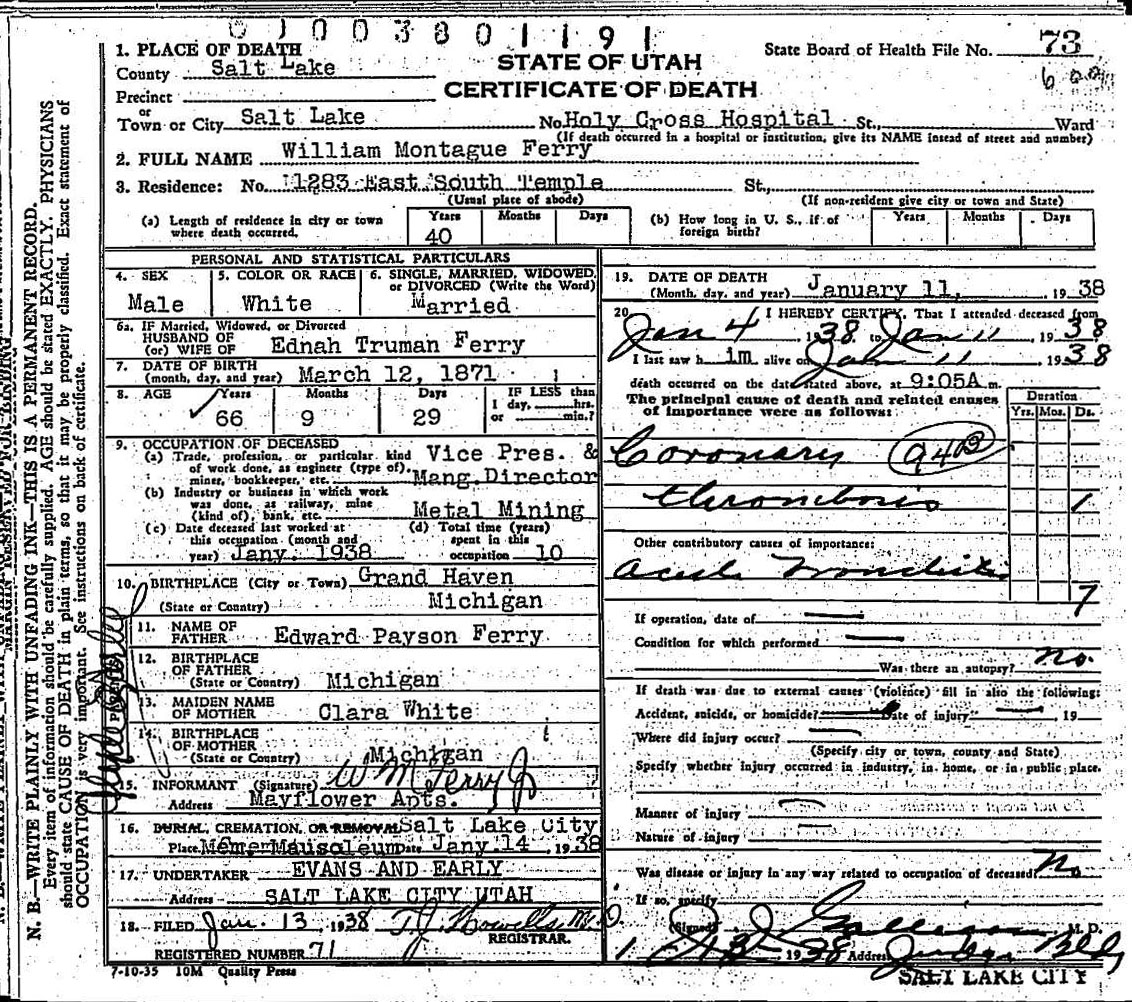 0 1 0 0 3 8 0 1 1 9 1
1. PLACE OF DEATH
County Salt Lake
Precinct
or
Town or City Salt Lake
STATE OF UTAH
CERTIFICATE OF DEATH
State Board of Health File No. 73
No. Holy Cross Hospital St., Ward
(If death occurred in a hospital or institution, give its NAME insead of street and number)
2. FULL NAME William Montague Ferry
3. Residence: No. 1283 East South Temple St.,
(Usual place of abode) (If non-resident give city or town and State)
(a) Length of residence in city or town where death occurred. Years 40 Months Days
(b) How long in U. S., if of foreign birth? Years Months Days
PERSONAL AND STATISTICAL PARTICULARS
4. SEX Male
5. COLOR OR RACE White
6. SINGLE, MARRIED, WIDOWED, or DIVORCED (Write the Word) Married
6a. IF Married, Widowed, or Divorced
HUSBAND OF
(or) WIFE OF Ednah Truman Ferry
7. DATE OF BIRTH
(month, day, and year) March 12, 1871
8. AGE Years 66 Months 9 Days 29 IF LESS than 1 day, hrs. or min.?
9. OCCUPATION OF DECEASED
(a) Trade, profession, or particular kind of work done, as engineer (type of), miner, bookkeeper, etc. Vice Pres. & Mang. Director
(b) Industry or business in which work was done, as railway, mine (kind of), bank, etc. Metal Mining
(c) Date deceased last worked at this occupation (month and year) Jany. 1938
(d) Total time (years) spent in this occupation 10
10. BIRTHPLACE (City or Town) Grand Haven
(State or Country) Michigan
11. NAME OF FATHER Edward Payson Ferry
12. BIRTHPLACE OF FATHER
(State or Country) Michigan
13. MAIDEN NAME OF MOTHER Clara White
14. BIRTHPLACE OF MOTHER
(State or Country) Michigan
15. INFORMANT (Signature) W M Ferry Jr
Address Mayflower Apts.
16. BURIAL, CREMATION, OR REMOVAL Salt Lake City
Place Mem. Mausoleum Date Jany. 14, 1938
17. UNDERTAKER EVANS AND EARLY
Address SALT LAKE CITY UTAH
18. FILED Jan. 13, 1938 T.J. Howells M.D.
REGISTRAR.
REGISTERED NUMBER 71
7-10-35 10M Quality Press
19. DATE OF DEATH
(Month, day, and year) January 11, 1938
20 I HEREBY CERTIFY, That I attended deceased from
Jan 4 1938 to Jan 11 1938
I last saw him alive on Jan 11 1938
death occurred on the date stated above, at 9:05A m.
The principal cause of death and related causes of importance were as follows:
Duration
Yrs. Mos. Ds.
Coronary 94B
thrombosis 1
Other contributory causes of importance:
acute bronchitis
7
If operation, date of
Condition for which performed
Was there an autopsy? no.
If death was due to external causes (violence) fill in also the following:
Accident, suicide, or homicide? Date of injury 19
Where did injury occur?
(Specify city or town, county and State)
Specify whether injury occurred in industry, in home, or in public place.
Manner of injury
Nature of injury
Was disease or injury in any way related to occupation of deceased? No
If so, specify
(Signed) M. D.
1938 Address Judge Bldg
SALT LAKE CITY
N. B.—WRITE PLAINLY WITH UNFADING INK—THIS IS A PERMANENT RECORD.
Every item of information should be carefully supplied. AGE should be stated EXACTLY. PHYSICIANS
should state CAUSE OF DEATH in plain terms, so that it may be properly classified. Exact statement of
OCCUPATION is very important. See instructions on back of certificate.